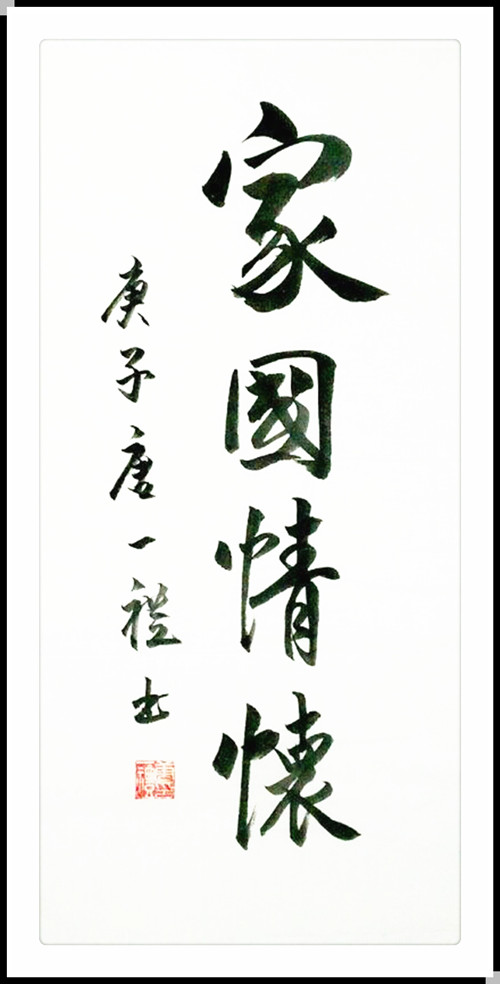 家國情懷
庚子唐一禮书